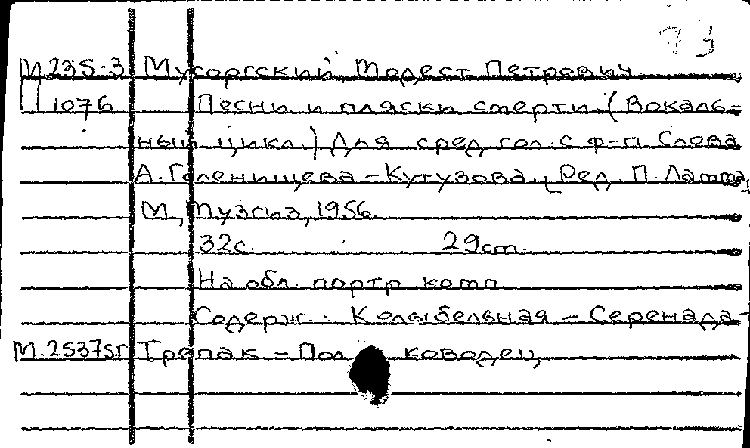 73
М.235-3 Мусоргский Модест Петрович
П 1076 Песни и пляски смерти. (Вокаль-
ный цикл.) Для сред. гол. с ф-п. Слова
А. Голенищева-Кутузова. [Ред. П. Ламма]
М., Музгиз, 1956.
32с. 29см.
На обл. портр. комп.
Содерж.: Колыбельная - Серенада-
М.25375г Трепак - Пол ководец,